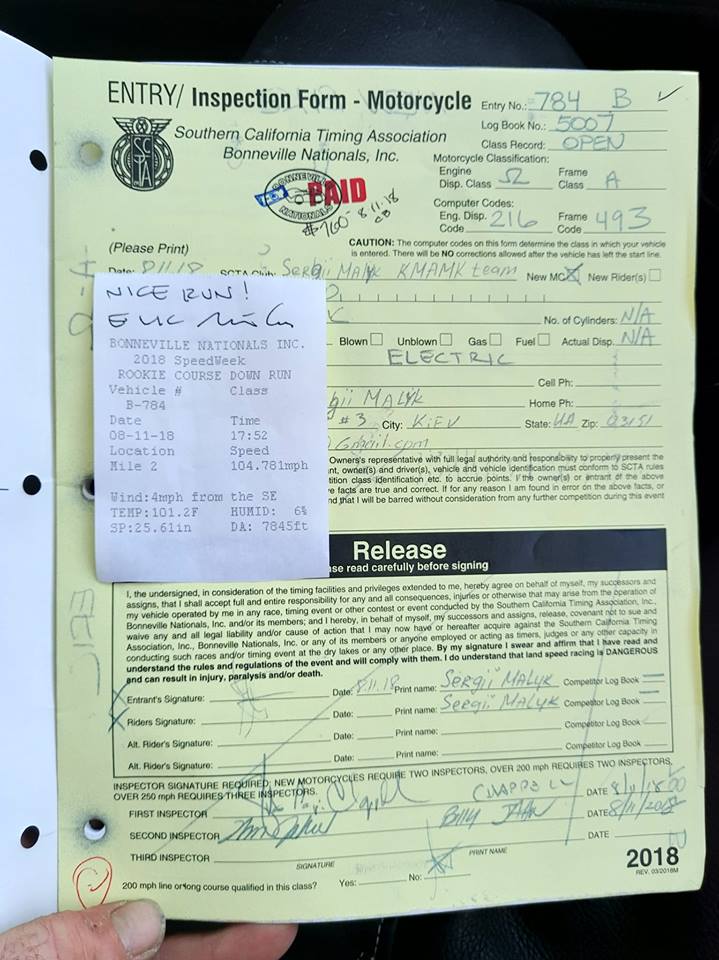 ENTRY/ Inspection Form - Motorcycle
Entry No.: 784 B
Southern California Timing Association
Bonneville Nationals, Inc.
Log Book No.: 5007
Class Record: OPEN
Motorcycle Classification:
Engine Disp. Class Ω Frame Class A
Computer Codes:
Eng. Disp. Code 216 Frame Code 493
SCTA
BONNEVILLE NATIONALS
PAID
$760- 8.11.18
CB
(Please Print)
CAUTION: The computer codes on this form determine the class in which your vehicle
is entered. There will be NO corrections allowed after the vehicle has left the start line.
Date: 8.11.18 SCTA Club: Sergii Malyk KMAMK team New MC X New Rider(s)
No. of Cylinders: N/A
Blown Unblown Gas Fuel Actual Disp. N/A
ELECTRIC
Cell Ph:
MALYK Home Ph:
#3 City: KiEV State: UA Zip: 03151
@Gmail.com
NICE RUN!
BONNEVILLE NATIONALS INC.
2018 SpeedWeek
ROOKIE COURSE DOWN RUN
Vehicle # Class
B-784
Date Time
08-11-18 17:52
Location Speed
Mile 2 104.781mph
Wind:4mph from the SE
TEMP:101.2F HUMID: 6%
SP:25.61in DA: 7845ft
Owners's representative with full legal authority and responsibility to properly present the
nt, owner(s) and driver(s), vehicle and vehicle identification must conform to SCTA rules
tition class identification etc. to accrue points. If the owner(s) or entrant of the above
e facts are true and correct. If for any reason I am found in error on the above facts, or
nd that I will be barred without consideration from any further competition during this event
Release
se read carefully before signing
I, the undersigned, in consideration of the timing facilities and privileges extended to me, hereby agree on behalf of myself, my successors and
assigns, that I shall accept full and entire responsibility for any and all consequences, injuries or otherwise that may arise from the operation of
my vehicle operated by me in any race, timing event or other contest or event conducted by the Southern California Timing Association, Inc.,
Bonneville Nationals, Inc. and/or its members; and I hereby, in behalf of myself, my successors and assigns, release, covenant not to sue and
waive any and all legal liability and/or cause of action that I may now have or hereafter acquire against the Southern California Timing
Association, Inc., Bonneville Nationals, Inc. or any of its members or anyone employed or acting as timers, judges or any other capacity in
conducting such races and/or timing event at the dry lakes or any other place. By my signature I swear and affirm that I have read and
understand the rules and regulations of the event and will comply with them. I do understand that land speed racing is DANGEROUS
and can result in injury, paralysis and/or death.
Entrant's Signature: Date: 8.11.18 Print name: Sergii MALYK Competitor Log Book
Riders Signature: Date: Print name: Sergii MALYK Competitor Log Book
Alt. Rider's Signature: Date: Print name: Competitor Log Book
Alt. Rider's Signature: Date: Print name: Competitor Log Book
INSPECTOR SIGNATURE REQUIRED: NEW MOTORCYCLES REQUIRE TWO INSPECTORS, OVER 200 MPH REQUIRES TWO INSPECTORS,
OVER 250 MPH REQUIRES THREE INSPECTORS.
FIRST INSPECTOR CHAPPELL DATE 8/11/18
SECOND INSPECTOR Billy DATE 8/11/2018
THIRD INSPECTOR DATE
SIGNATURE PRINT NAME
200 mph line or long course qualified in this class? Yes: No: X
2018
REV. 03/2018M